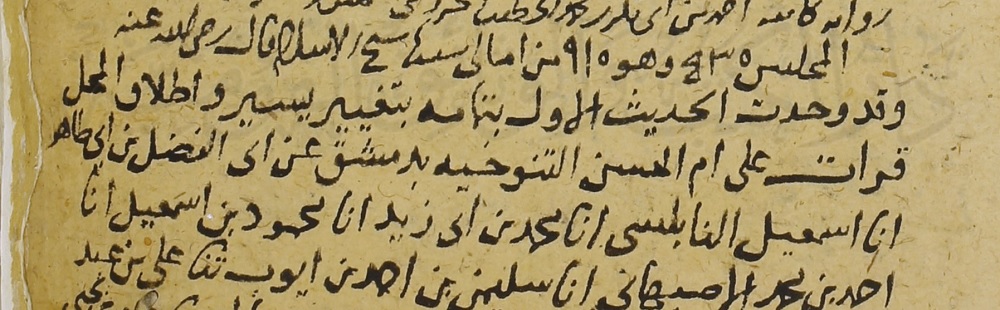 رواية كاتبه احمد بن ابى بكر بن محمد الخطيب
المجلس ٤٣٥ وهو ٩١٥ من امالى استاذنا شيخ الاسلام قال رضى الله عنه
وقد وجدت الحديث الاول بتمامه بتغيير يسير واطلاق المحل
قرات على ام الحسن التنوخيه بدمشق عن ابى الفضل بن ابى طاهر
انا اسمعيل النابلسى انا محمد بن ابى زيد انا محمود بن اسمعيل انا
احمد بن محمد الاصبهانى انا سليمن بن احمد بن ايوب ثنا على بن عبد